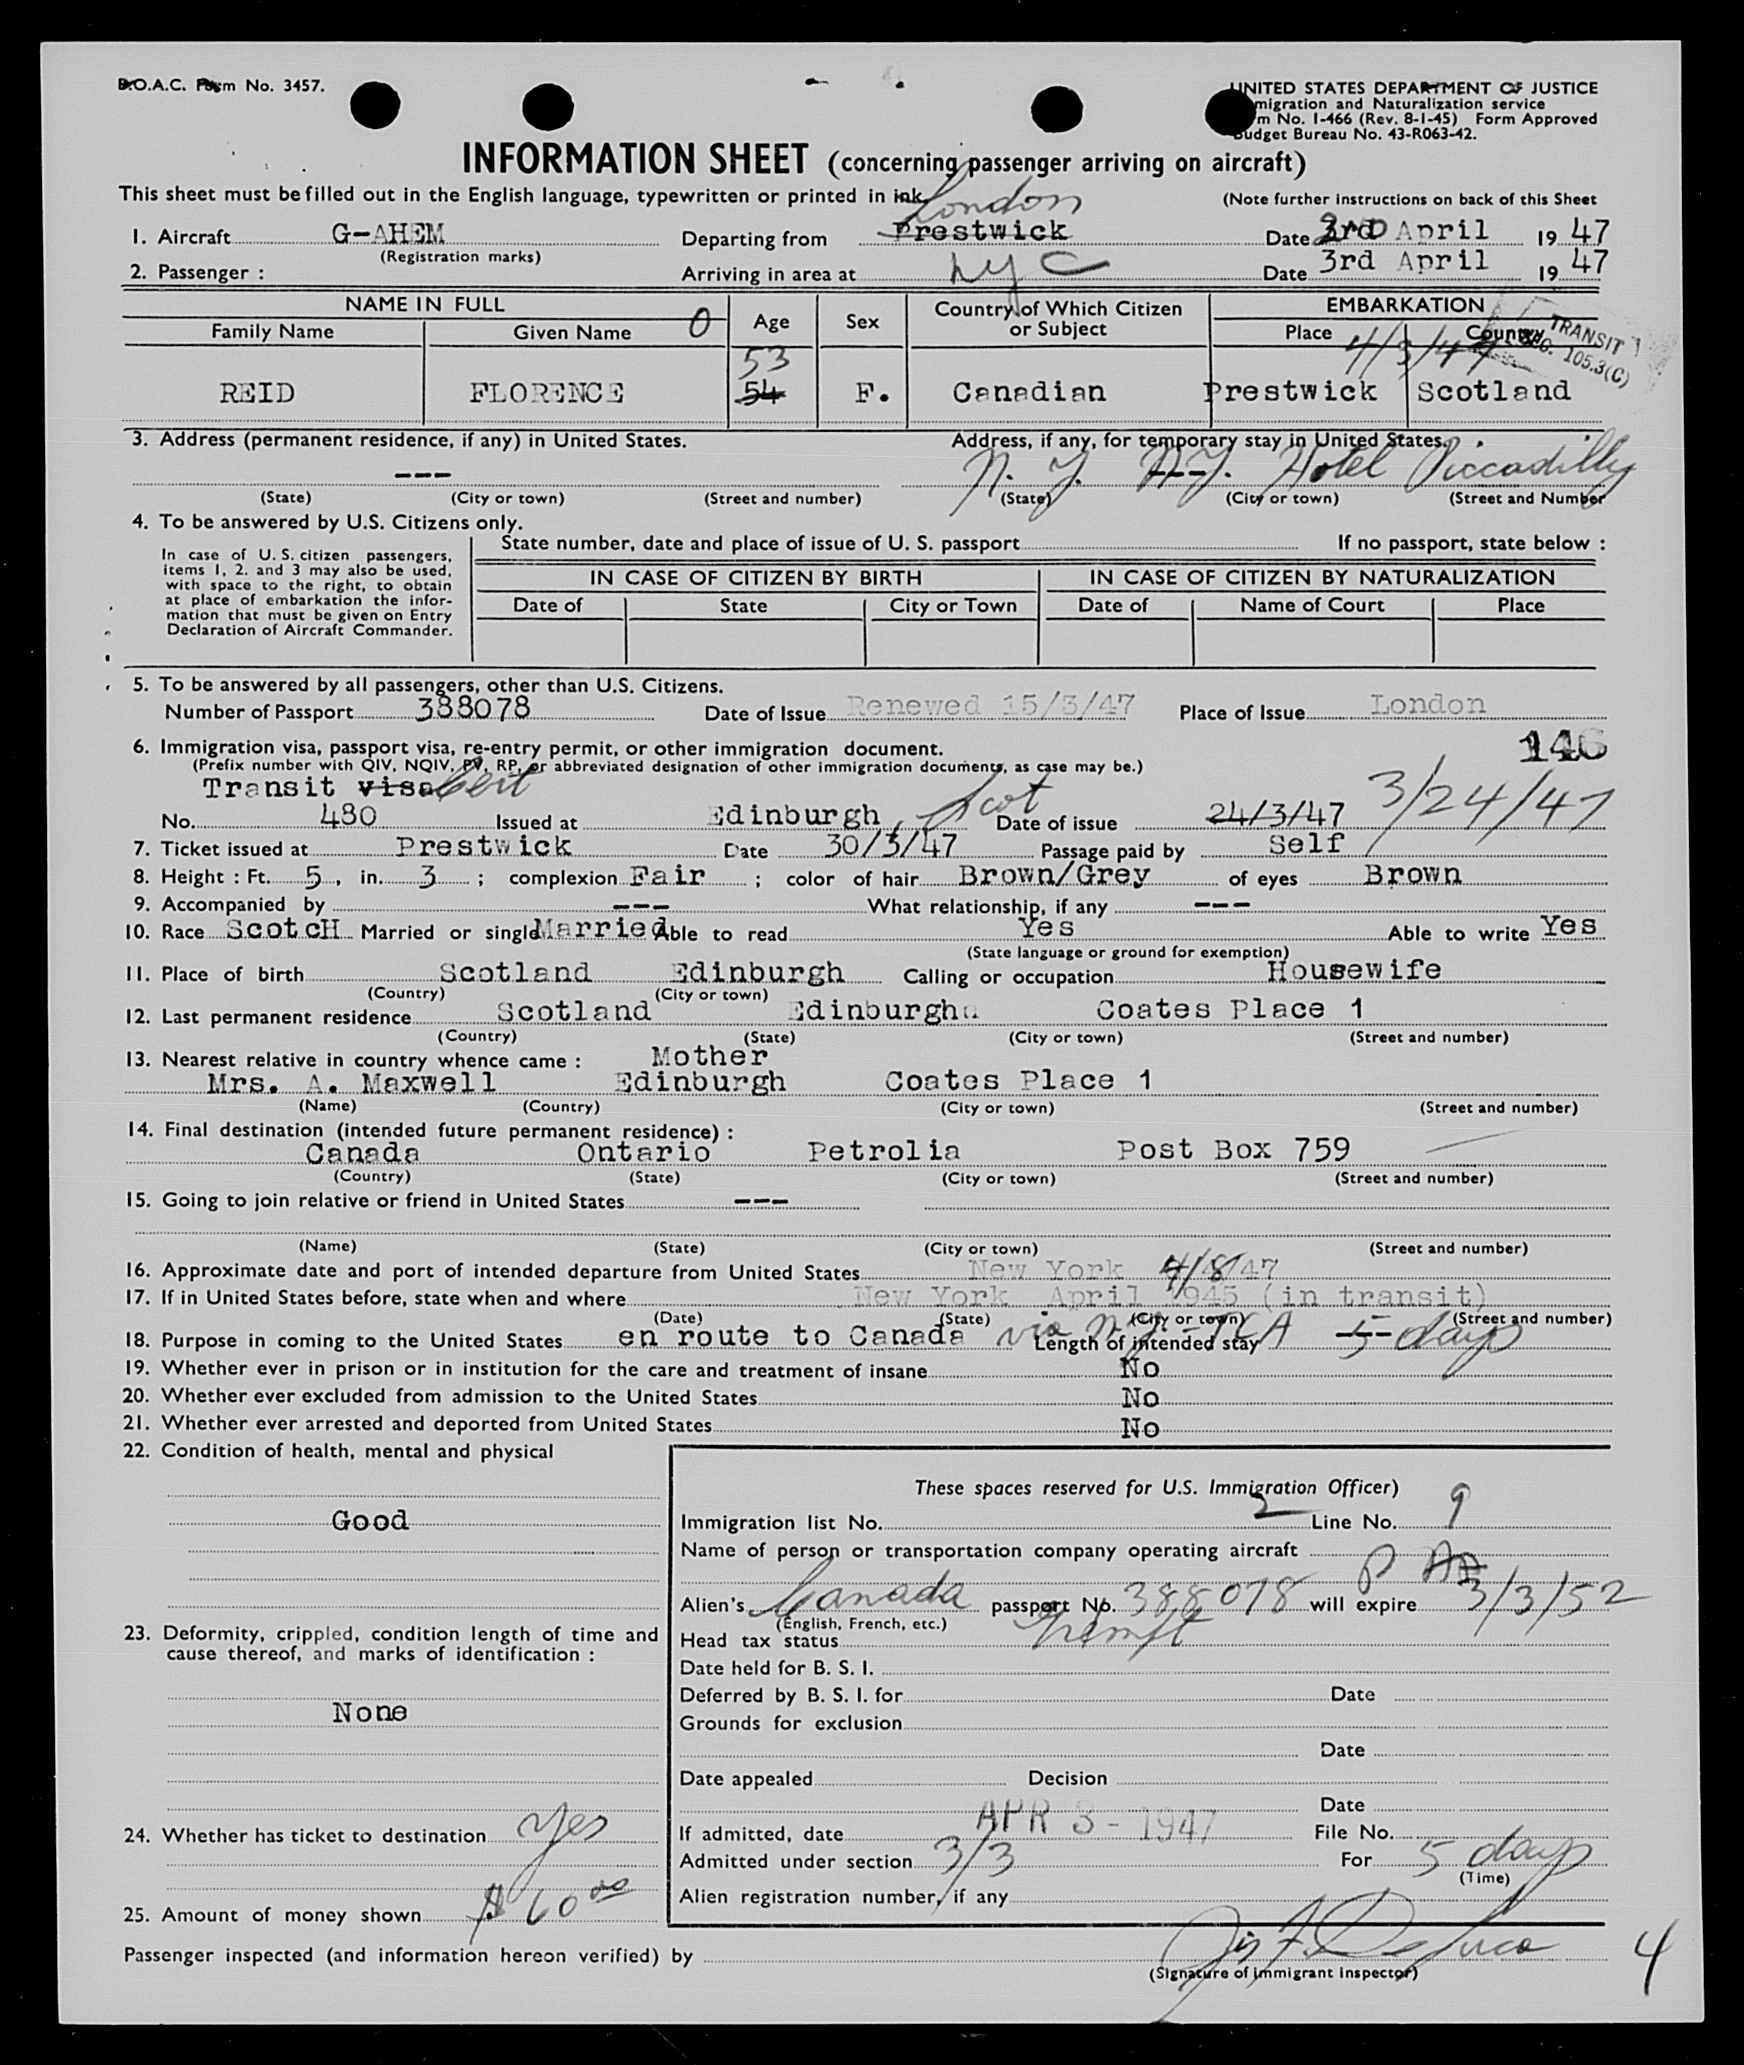 B.O.A.C. Form No. 3457.
UNITED STATES DEPARTMENT OF JUSTICE
migration and Naturalization service
m No. I-466 (Rev. 8-1-45) Form Approved
Budget Bureau No. 43-R063-42.
INFORMATION SHEET (concerning passenger arriving on aircraft)
This sheet must be filled out in the English language, typewritten or printed in ink.
(Note further instructions on back of this Sheet
London
1. Aircraft G-AHEM Departing from Prestwick Date 3rd April 19 47
(Registration marks)
2. Passenger : Arriving in area at NYC Date 3rd April 19 47
NAME IN FULL Age Sex Country of Which Citizen or Subject EMBARKATION
Family Name Given Name O Place Country
4/3/47 TRANSIT
105.3(C)
53
REID FLORENCE 54 F. Canadian Prestwick Scotland
3. Address (permanent residence, if any) in United States. Address, if any, for temporary stay in United States.
--- N.Y. N.Y. Hotel Piccadilly
(State) (City or town) (Street and number) (State) (City or town) (Street and Number
4. To be answered by U.S. Citizens only.
State number, date and place of issue of U. S. passport If no passport, state below :
In case of U. S. citizen passengers,
items 1, 2. and 3 may also be used,
with space to the right, to obtain
at place of embarkation the infor-
mation that must be given on Entry
Declaration of Aircraft Commander.
IN CASE OF CITIZEN BY BIRTH IN CASE OF CITIZEN BY NATURALIZATION
Date of State City or Town Date of Name of Court Place
5. To be answered by all passengers, other than U.S. Citizens.
Number of Passport 388078 Date of Issue Renewed 15/3/47 Place of Issue London
6. Immigration visa, passport visa, re-entry permit, or other immigration document. 146
(Prefix number with QIV, NQIV, PV, RP, or abbreviated designation of other immigration documents, as case may be.)
Transit visa Cert
No. 480 Issued at Edinburgh, Scot Date of issue 24/3/47 3/24/47
7. Ticket issued at Prestwick Date 30/3/47 Passage paid by Self
8. Height : Ft. 5, in. 3 ; complexion Fair ; color of hair Brown/Grey of eyes Brown
9. Accompanied by --- What relationship, if any ---
10. Race ScotcH Married or single Married Able to read Yes Able to write Yes
(State language or ground for exemption)
11. Place of birth Scotland Edinburgh Calling or occupation Housewife
(Country) (City or town)
12. Last permanent residence Scotland Edinburgh Coates Place 1
(Country) (State) (City or town) (Street and number)
13. Nearest relative in country whence came : Mother
Mrs. A. Maxwell Edinburgh Coates Place 1
(Name) (Country) (City or town) (Street and number)
14. Final destination (intended future permanent residence) :
Canada Ontario Petrolia Post Box 759
(Country) (State) (City or town) (Street and number)
15. Going to join relative or friend in United States ---
(Name) (State) (City or town) (Street and number)
16. Approximate date and port of intended departure from United States New York 4/8/47
17. If in United States before, state when and where New York April 1945 (in transit)
(Date) (State) (City or town) (Street and number)
18. Purpose in coming to the United States en route to Canada via N.Y. - TCA Length of intended stay --- 5 days
19. Whether ever in prison or in institution for the care and treatment of insane No
20. Whether ever excluded from admission to the United States No
21. Whether ever arrested and deported from United States No
22. Condition of health, mental and physical
Good
23. Deformity, crippled, condition length of time and
cause thereof, and marks of identification :
None
24. Whether has ticket to destination Yes
25. Amount of money shown $ 60 00
These spaces reserved for U.S. Immigration Officer)
Immigration list No. 2 Line No. 9
Name of person or transportation company operating aircraft
P AA
Alien's Canada passport No. 388078 will expire 3/3/52
(English, French, etc.)
Head tax status Exempt
Date held for B. S. I.
Deferred by B. S. I. for Date
Grounds for exclusion
Date
Date appealed Decision
Date
If admitted, date APR 3 - 1947 File No.
Admitted under section 3/3 For 5 days
(Time)
Alien registration number, if any
Passenger inspected (and information hereon verified) by
(Signature of Immigrant Inspector)
4